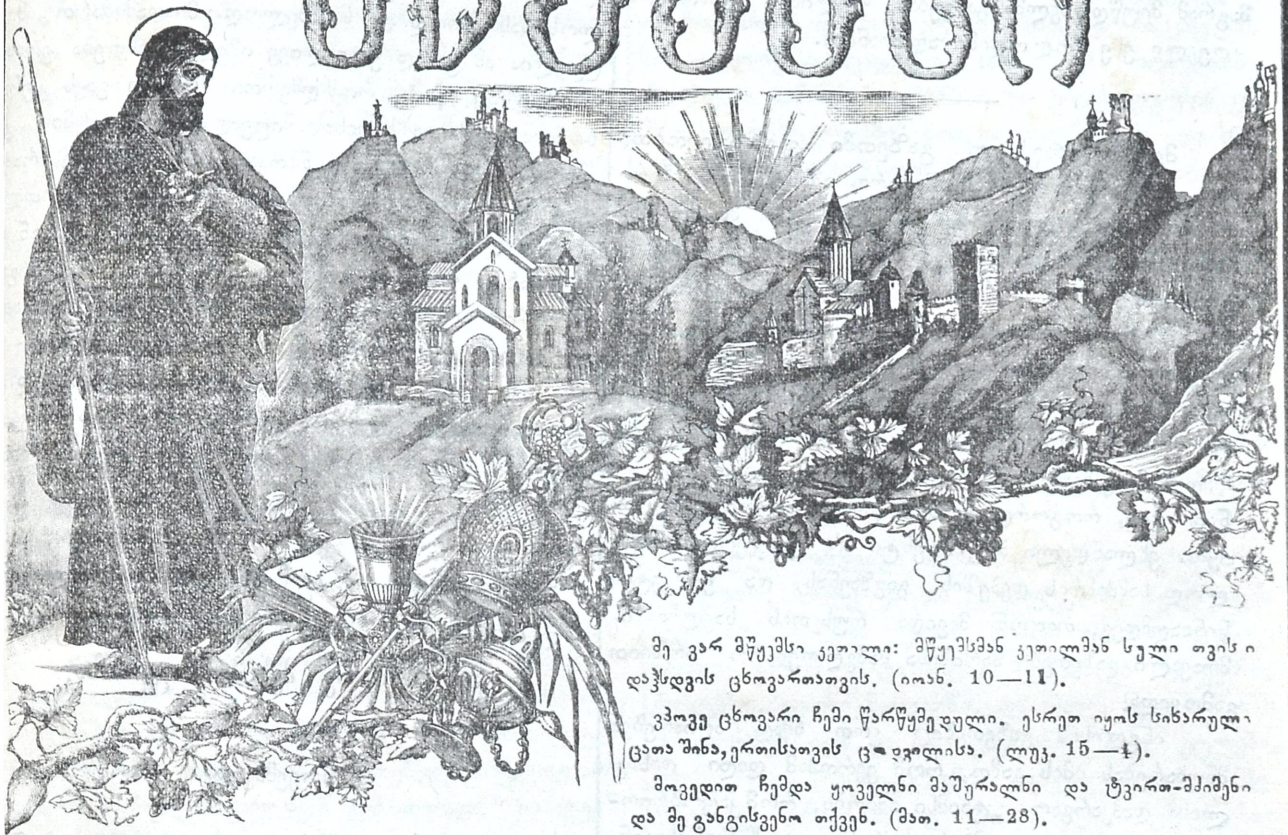 მე ვარ მწყემსი კეთილი: მწყემსმან კეთილმან სული თვისი
დაჰსდვის ცხოვართათვის. (იოან. 10—11).
ვჰოვე ცხოვარი ჩემი წარწყმედული. ესრეთ იყოს სიხარული
ცათა შინა, ერთისათვის ცოდვილისა. (ლუკ. 15—4).
მოვედით ჩემდა ყოველნი მაშურალნი და ტვირთ-მძიმენი
და მე განგისვენო თქვენ. (მათ. 11—28).